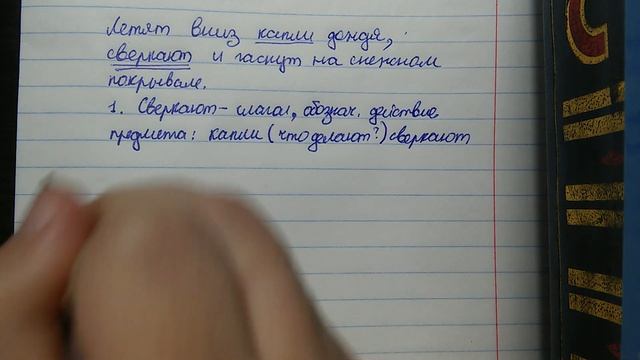 Летят вниз капли дождя,
сверкают и гаснут на снежном
покрывале.
1. Сверкают - глагол, обознач. действие
предмета: капли (что делают?) сверкают